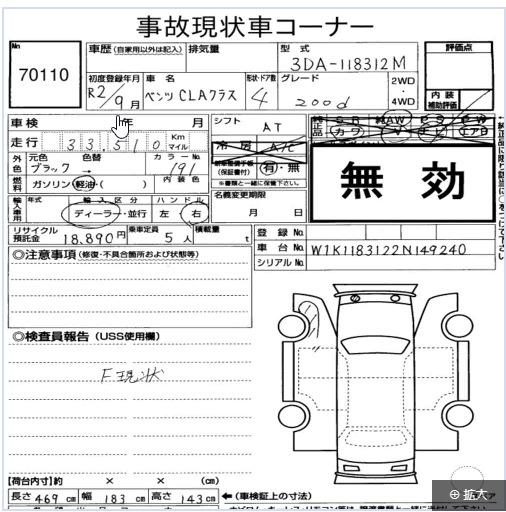 事故現状車コーナー
No
70110
車歴 (自家用以外は記入)
排気量
型式
3DA-118312M
評価点
初度登録年月
R2/9月
車名
ベンツ CLAクラス
形状・ドア数
4
グレード
200d
2WD
4WD
内装
補助評価
車検 年 月
シフト
AT
走行 33,510 Km
マイル
冷房 A/C
AW
カワ
エアB
外色
元色
ブラック
色替
→
カラーNo.
191
(保証書付)
有・無
※書類と一緒に保管下さい。
無効
燃料
ガソリン・軽油・( )
内装色
輸入車用
年式
輸入区分
ディーラー・並行
ハンドル
左 右
名義変更期限
月 日
リサイクル預託金
18,890円
乗車定員
5人
積載量
t
登録No.
車台No.
W1K1183122N149240
シリアルNo.
◎注意事項 (修復・不具合箇所および状態等)
◎検査員報告 (USS使用欄)
F現状
【荷台内寸】約 × × (cm)
長さ 469 cm 幅 183 cm 高さ 143 cm
←(車検証上の寸法)
拡大